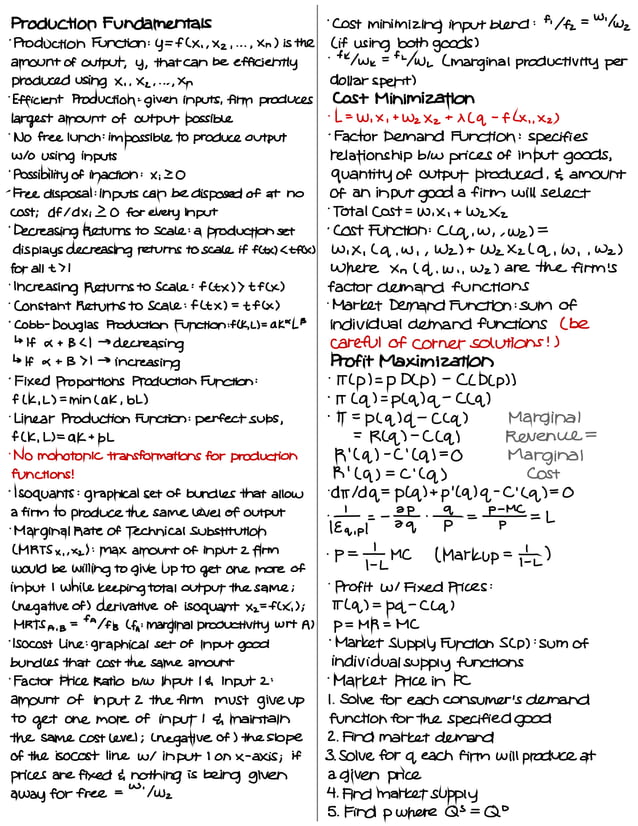 Production Fundamentals
·Production Function: y=f(x₁, x₂, ..., xₙ) is the
amount of output, y, that can be efficiently
produced using x₁, x₂, ..., xₙ
·Efficient Production: given inputs, firm produces
largest amount of output possible
·No free lunch: impossible to produce output
w/o using inputs
·Possibility of inaction: xᵢ ≥ 0
·Free disposal: inputs can be disposed of at no
cost; df/dxᵢ ≥ 0 for every input
·Decreasing Returns to Scale: a production set
displays decreasing returns to scale if f(tx)<tf(x)
for all t>1
·Increasing Returns to Scale: f(tx)>tf(x)
·Constant Returns to Scale: f(tx) = tf(x)
·Cobb-Douglas Production Function: f(K,L)=aK^αL^β
↳ If α + β < 1 → decreasing
↳ If α + β > 1 → increasing
·Fixed Proportions Production Function:
f(K,L)=min(aK, bL)
·Linear Production Function: perfect subs,
f(K,L)=aK+bL
·No monotonic transformations for production
functions!
·Isoquants: graphical set of bundles that allow
a firm to produce the same level of output
·Marginal Rate of Technical Substitution
(MRTS x₁,x₂): max amount of input 2 firm
would be willing to give up to get one more of
input 1 while keeping total output the same;
(negative of) derivative of isoquant x₂=f(x₁);
MRTS_A,B = f_A/f_B (f_A: marginal productivity wrt A)
·Isocost Line: graphical set of input good
bundles that cost the same amount
·Factor Price Ratio b/w Input 1 & Input 2:
amount of input 2 the firm must give up
to get one more of input 1 & maintain
the same cost level; (negative of) the slope
of the isocost line w/ input 1 on x-axis; if
prices are fixed & nothing is being given
away for free = w₁/w₂
·Cost minimizing input blend: f₁/f₂ = w₁/w₂
(if using both goods)
·f_K/w_K = f_L/w_L (marginal productivity per
dollar spent)
Cost Minimization
·L = w₁x₁ + w₂x₂ + λ(q - f(x₁,x₂)
·Factor Demand Function: specifies
relationship b/w prices of input goods,
quantity of output produced, & amount
of an input good a firm will select
·Total Cost = w₁x₁ + w₂x₂
·Cost Function: C(q,w₁,w₂) =
w₁x₁(q,w₁,w₂)+w₂x₂(q,w₁,w₂)
where xₙ(q,w₁,w₂) are the firm's
factor demand functions
·Market Demand Function: sum of
individual demand functions (be
careful of corner solutions!)
Profit Maximization
·π(p) = p D(p) - C(D(p))
·π(q) = p(q)q - C(q)
·π = p(q)q - C(q)
= R(q) - C(q)
R'(q) - C'(q) = 0
R'(q) = C'(q)
Marginal
Revenue =
Marginal
Cost
·dπ/dq = p(q)+p'(q)q - C'(q)=0
·1/|ε_q,p| = -∂p/∂q · q/p = p-MC/p = L
·P = 1/1-L MC (Markup = 1/1-L)
·Profit w/ Fixed Prices:
π(q) = pq - C(q)
p = MR = MC
·Market Supply Function S(p): sum of
individual supply functions
·Market Price in PC
1. Solve for each consumer's demand
function for the specified good
2. Find market demand
3. Solve for q each firm will produce at
a given price
4. Find market supply
5. Find p where Qˢ = Qᴰ